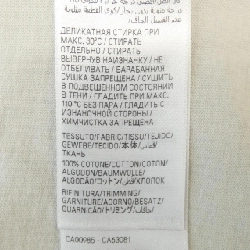 ДЕЛИКАТНАЯ СТИРКА ПРИ
МАКС. 30°C / СТИРАТЬ
ОТДЕЛЬНО / СТИРАТЬ
ВЫВЕРНУВ НАИЗНАНКУ / НЕ
ОТБЕЛИВАТЬ / БАРАБАННАЯ
СУШКА ЗАПРЕЩЕНА / СУШИТЬ
В ПОДВЕШЕННОМ СОСТОЯНИИ
В ТЕНИ / ГЛАДИТЬ ПРИ МАКС
110 °C БЕЗ ПАРА / ГЛАДИТЬ С
ИЗНАНОЧНОЙ СТОРОНЫ /
ХИМЧИСТКА ЗАПРЕЩЕНА
TESSUTO/FABRIC/TISSU/TEJIDO/
GEWEBE/TECIDO/本体/قماش/
ТКАНЬ
100% COTONE/COTTON/COTON/
ALGODÓN/BAUMWOLLE/
ALGODÃO/綿/قطن/ХЛОПОК
RIFINITURA/TRIMMING/
GARNITURE/ADORNO/BESATZ/
GUARNIÇÃO/トリミング/
CA00985 - CA53081